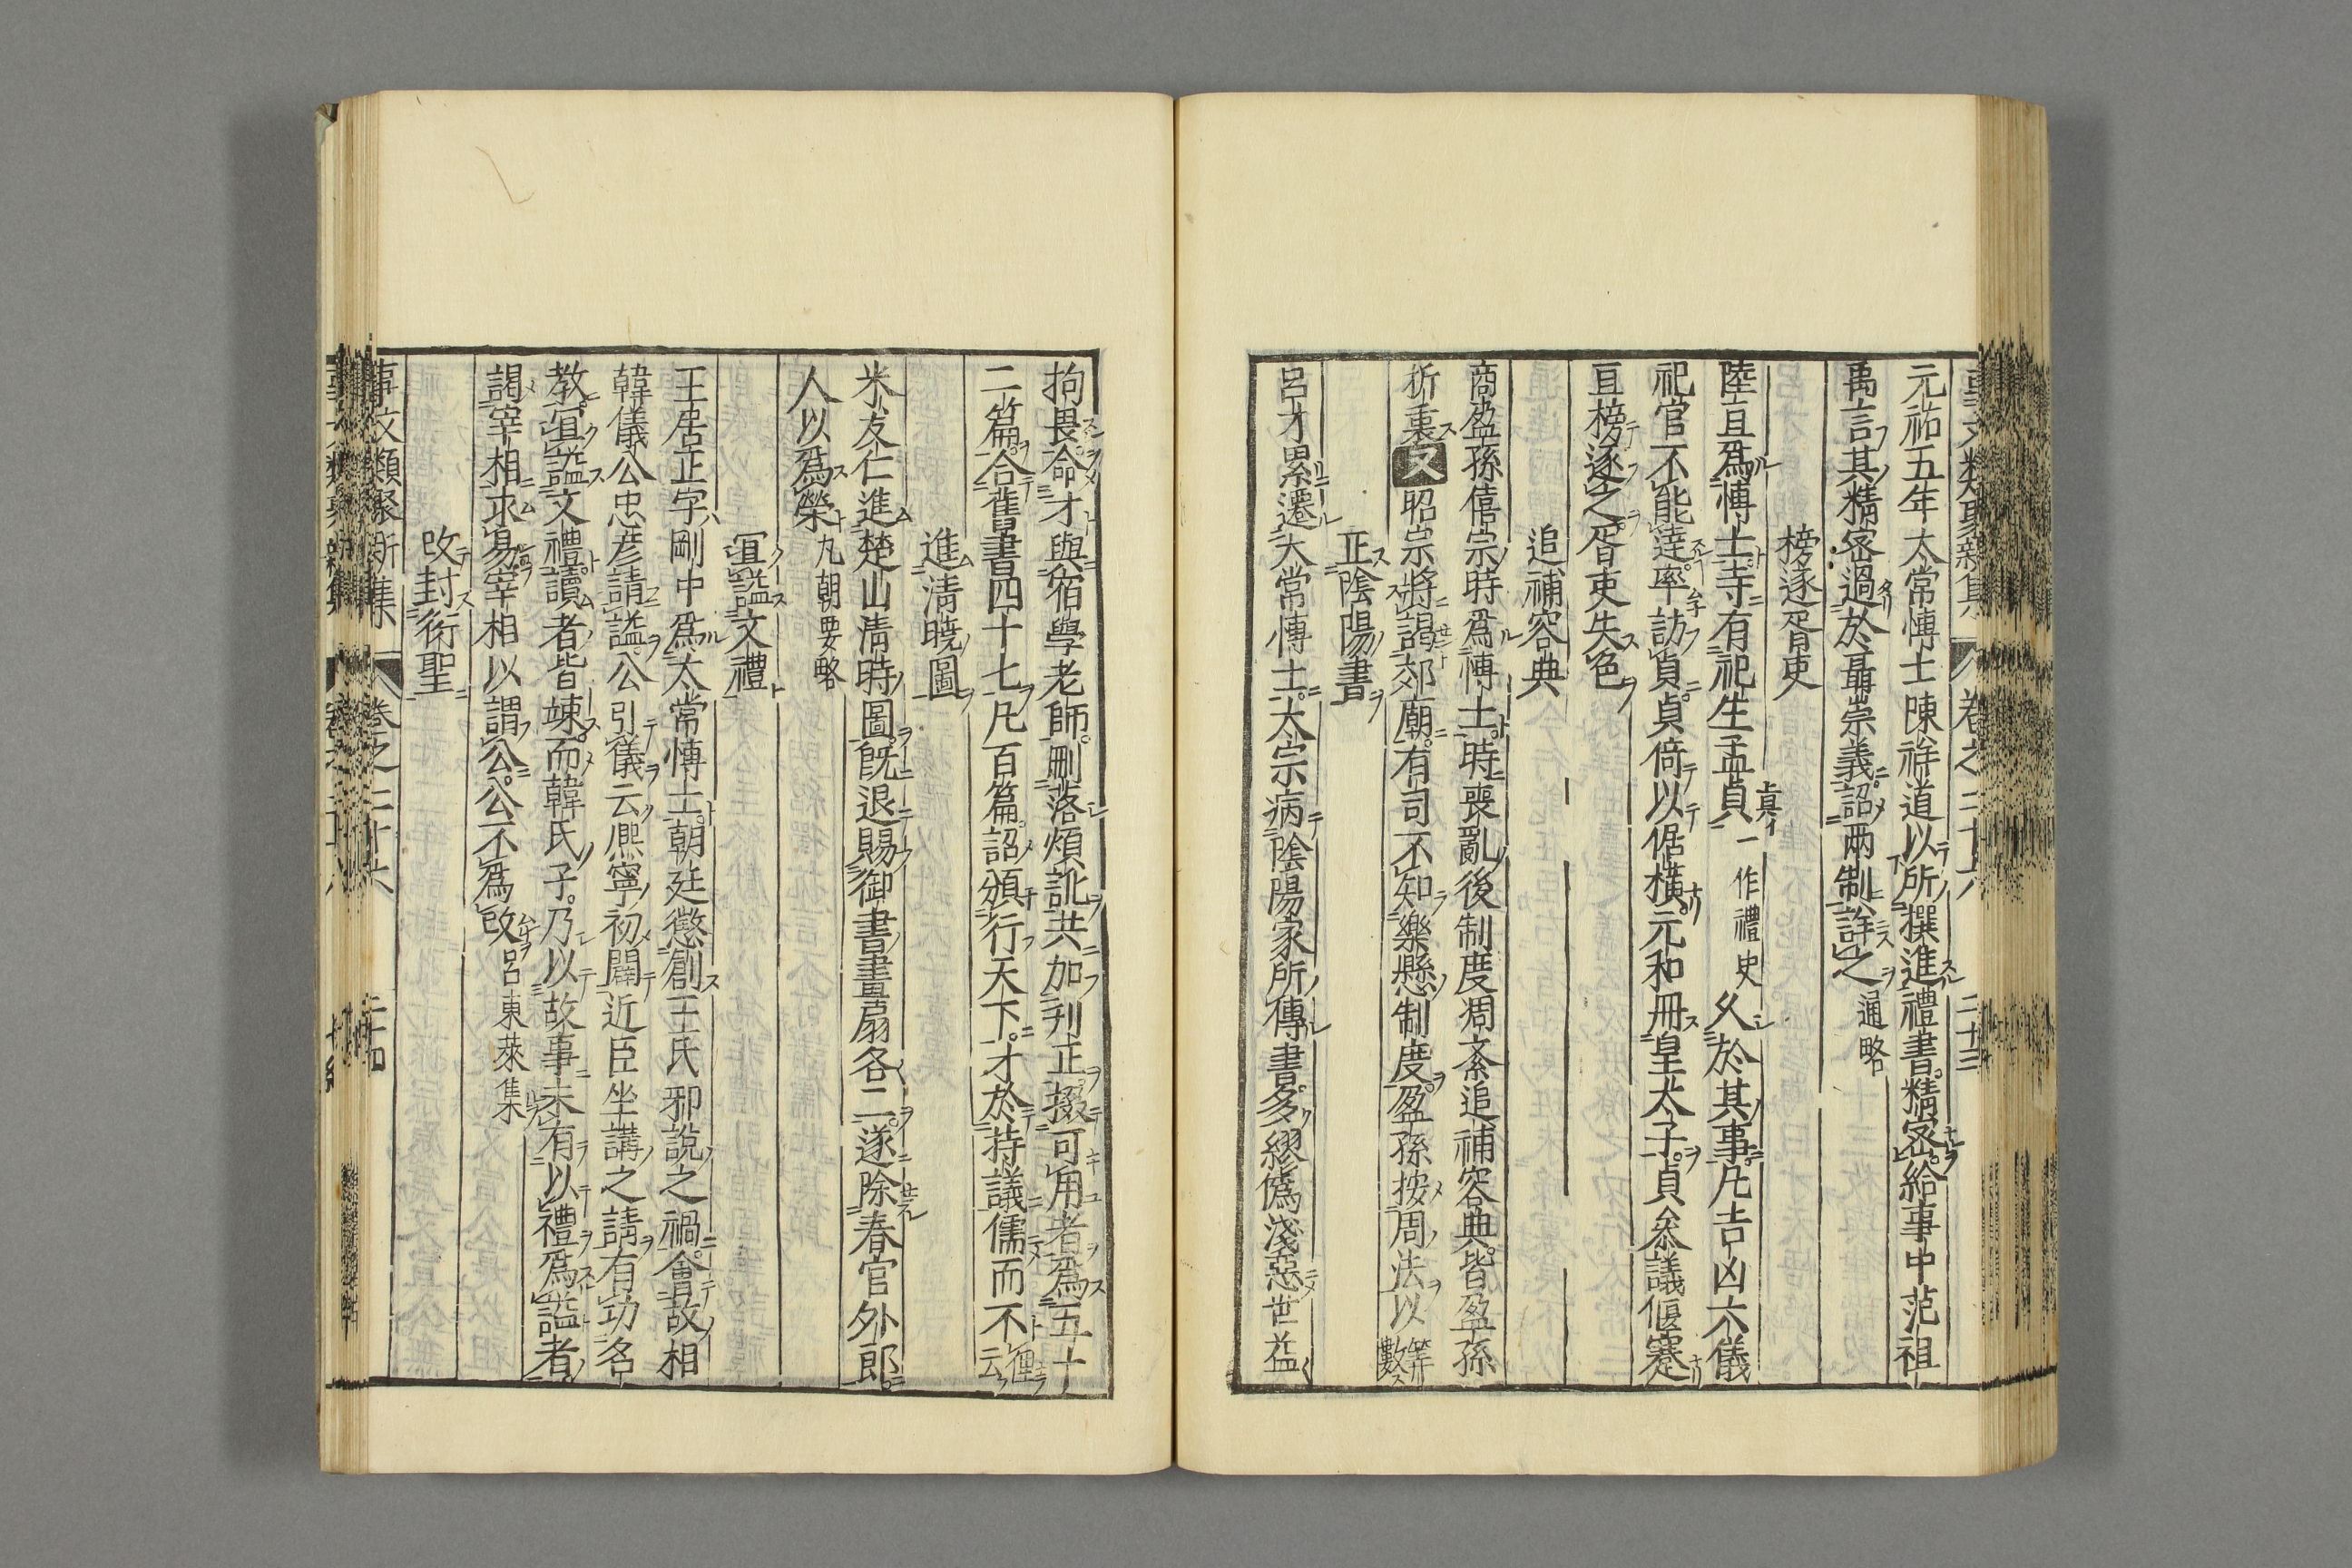 事文類聚新集 卷之二十六 二十三
元祐五年太常博士陳祥道以所撰進禮書精密給事中范祖
禹言其精密過於聶崇義詔兩制詳之通略
榜逐胥吏
陸亘爲博士寺有祀生孟貞一作禮史久於其事凡吉凶六儀
祀官不能達率訪貞貞倚以倨橫元和冊皇太子貞參議偃蹇
亘榜逐之胥吏失色
追補容典
商盈孫僖宗時爲博士時喪亂後制度凋紊追補容典皆盈孫
折衷又昭宗將謁郊廟有司不知樂懸制度盈孫按周法以筭數
正陰陽書
呂才累遷太常博士太宗病陰陽家所傳書多繆僞淺惡世益
拘畏命才與宿學老師刪落煩訛共加刋正掇可用者爲五十
二篇合舊書四十七凡百篇詔頒行天下才於持議儒而不俚云
進淸曉圖
米友仁進楚山淸時圖旣退賜御書畫扇各二遂除春官外郎
人以爲榮九朝要略
宜謚文禮
王居正字剛中爲太常博士朝廷懲創王氏邪說之禍會故相
韓儀公忠彦請謚公引儀云熈寧初闢近臣坐講之請有功名
敎宜謚文禮讀者皆竦而韓氏子乃以故事未有以禮爲謚者
謁宰相求易宰相以謂公公不爲改呂東萊集
改封衍聖
事文類聚新集 卷之二十六 二十四